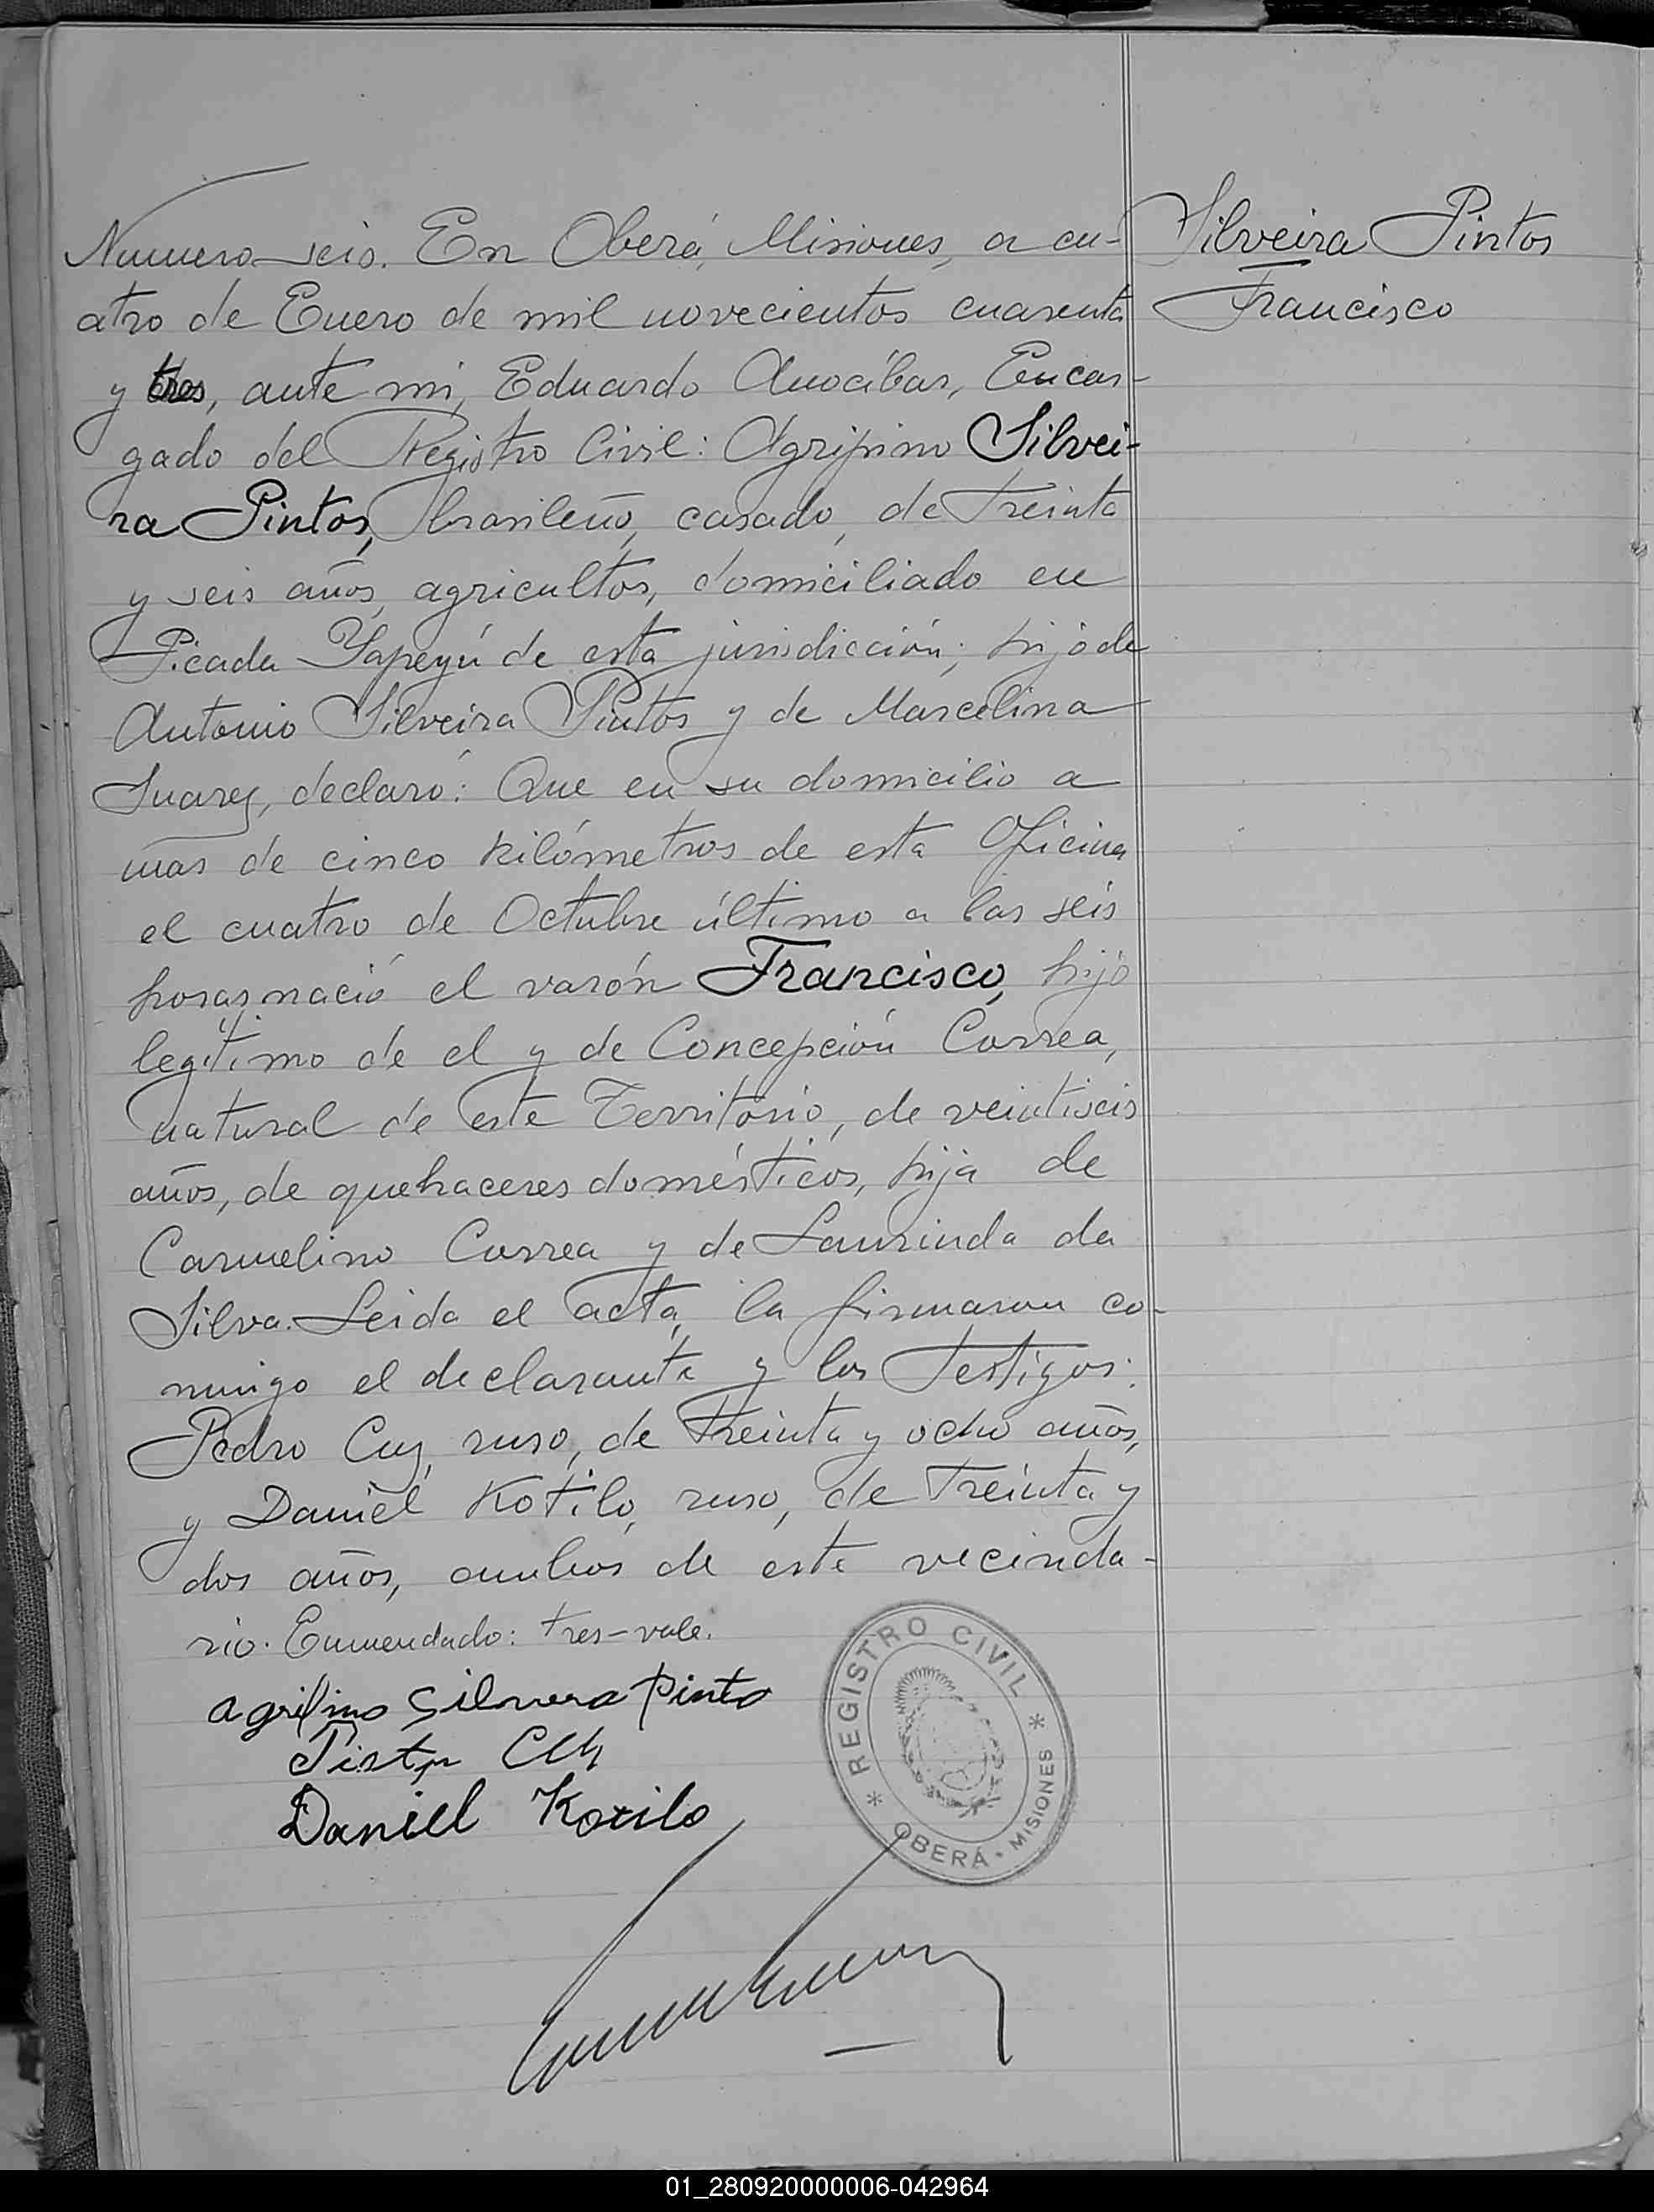 Numero seis. En Oberá, Misiones, a cu-
atro de Enero de mil novecientos cuarenta
y tres, ante mi, Eduardo Amocibar, Encar-
gado del Registro Civil: Agripino Silvei-
ra Pintos, brasileño, casado, de treinta
y seis años, agricultor, domiciliado en
Picada Yapeyú de esta jurisdicción; hijo de
Antonio Silveira Pintos y de Marcelina
Suarez, declaró: Que en su domicilio a
mas de cinco kilómetros de esta Oficina
el cuatro de Octubre último a las seis
horas nació el varón Francisco, hijo
legítimo de el y de Concepción Correa,
natural de este Territorio, de veintiseis
años, de quehaceres domésticos, hija de
Carmelino Correa y de Laurinda da
Silva. Leida el acta, la firmaron co-
nmigo el declarante y los testigos:
Pedro Cuz, ruso, de treinta y ocho años,
y Daniel Kotilo, ruso, de treinta y
dos años, ambos de este vecinda-
rio. Enmendado: tres-vale.
agripino Silvera pinto
Daniel Kotilo
Silveira Pintos
Francisco
* REGISTRO CIVIL *
OBERÁ - MISIONES
01_280920000006-042964